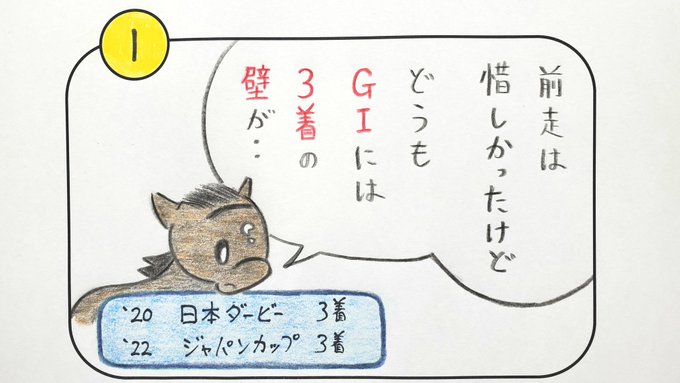 1
前走は
惜しかったけど
どうも
GIには
3着の
壁が‥
'20 日本ダービー 3着
'22 ジャパンカップ 3着